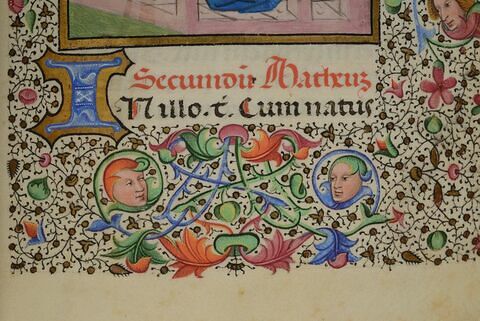 Secundum Matheuz
IN illo. t̄. Cum natus